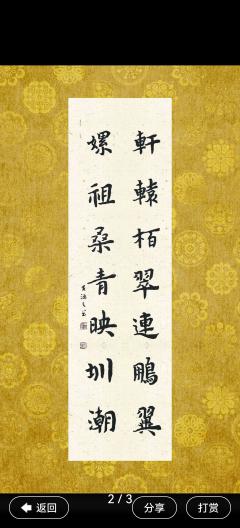 軒轅栢翠連鵬翼
嫘祖桑青映圳潮
2 / 3
返回
分享
打赏